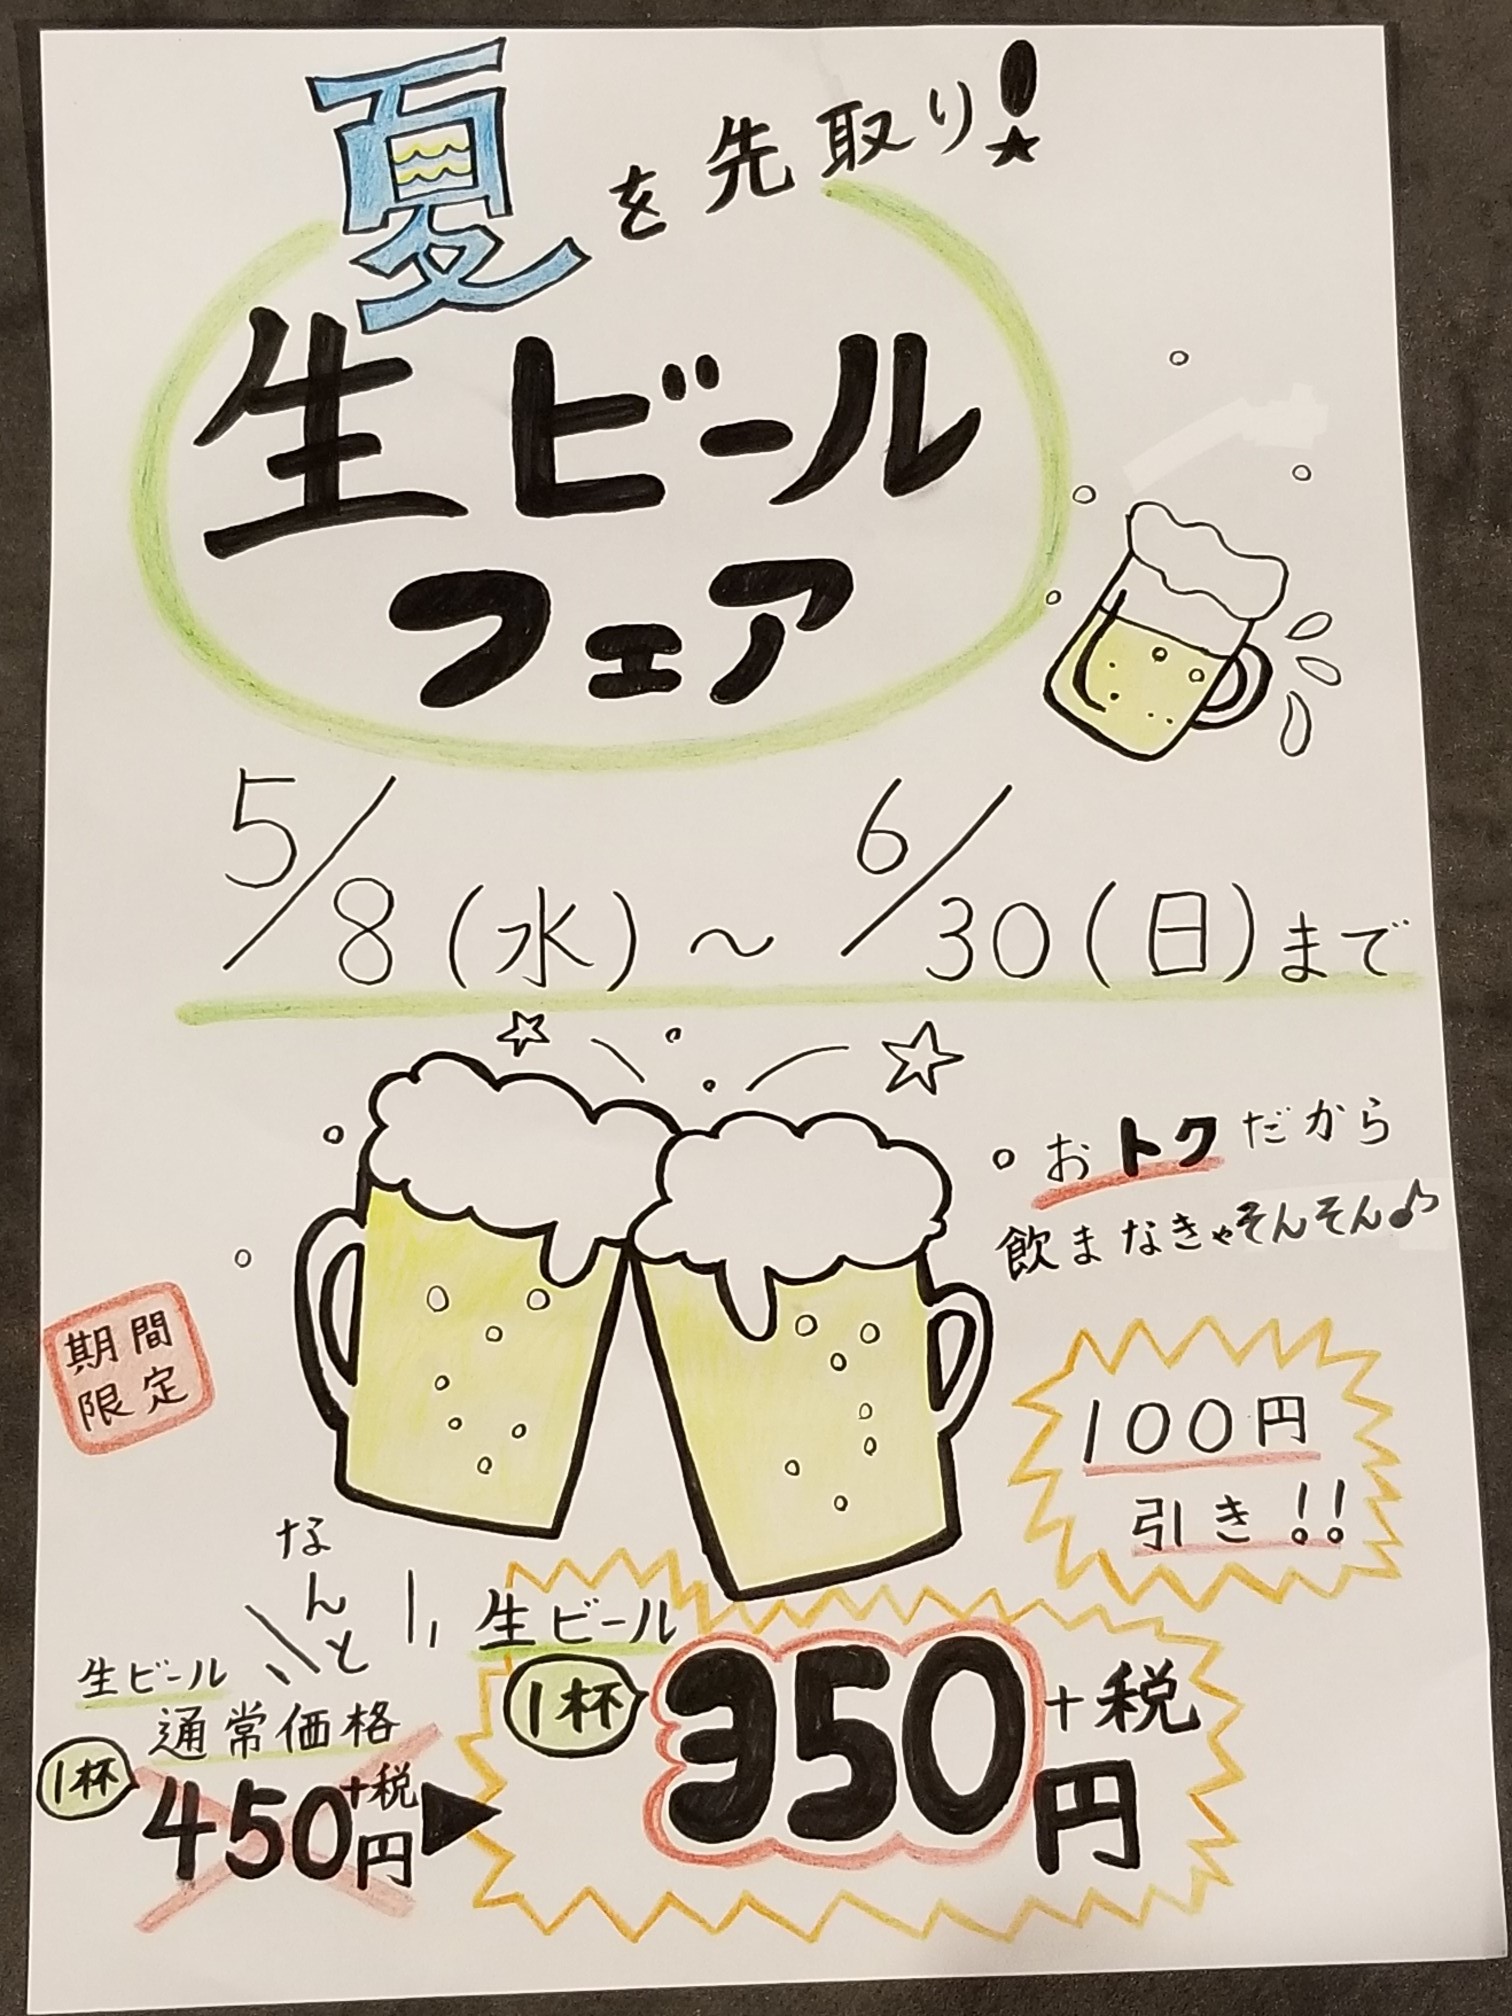 夏を先取り!
生ビール
フェア
5/8(水)～6/30(日)まで
おトクだから
飲まなきゃそんそん♪
期間
限定
100円
引き!!
なんと
生ビール
通常価格
1杯
450円+税
生ビール
1杯
350円+税